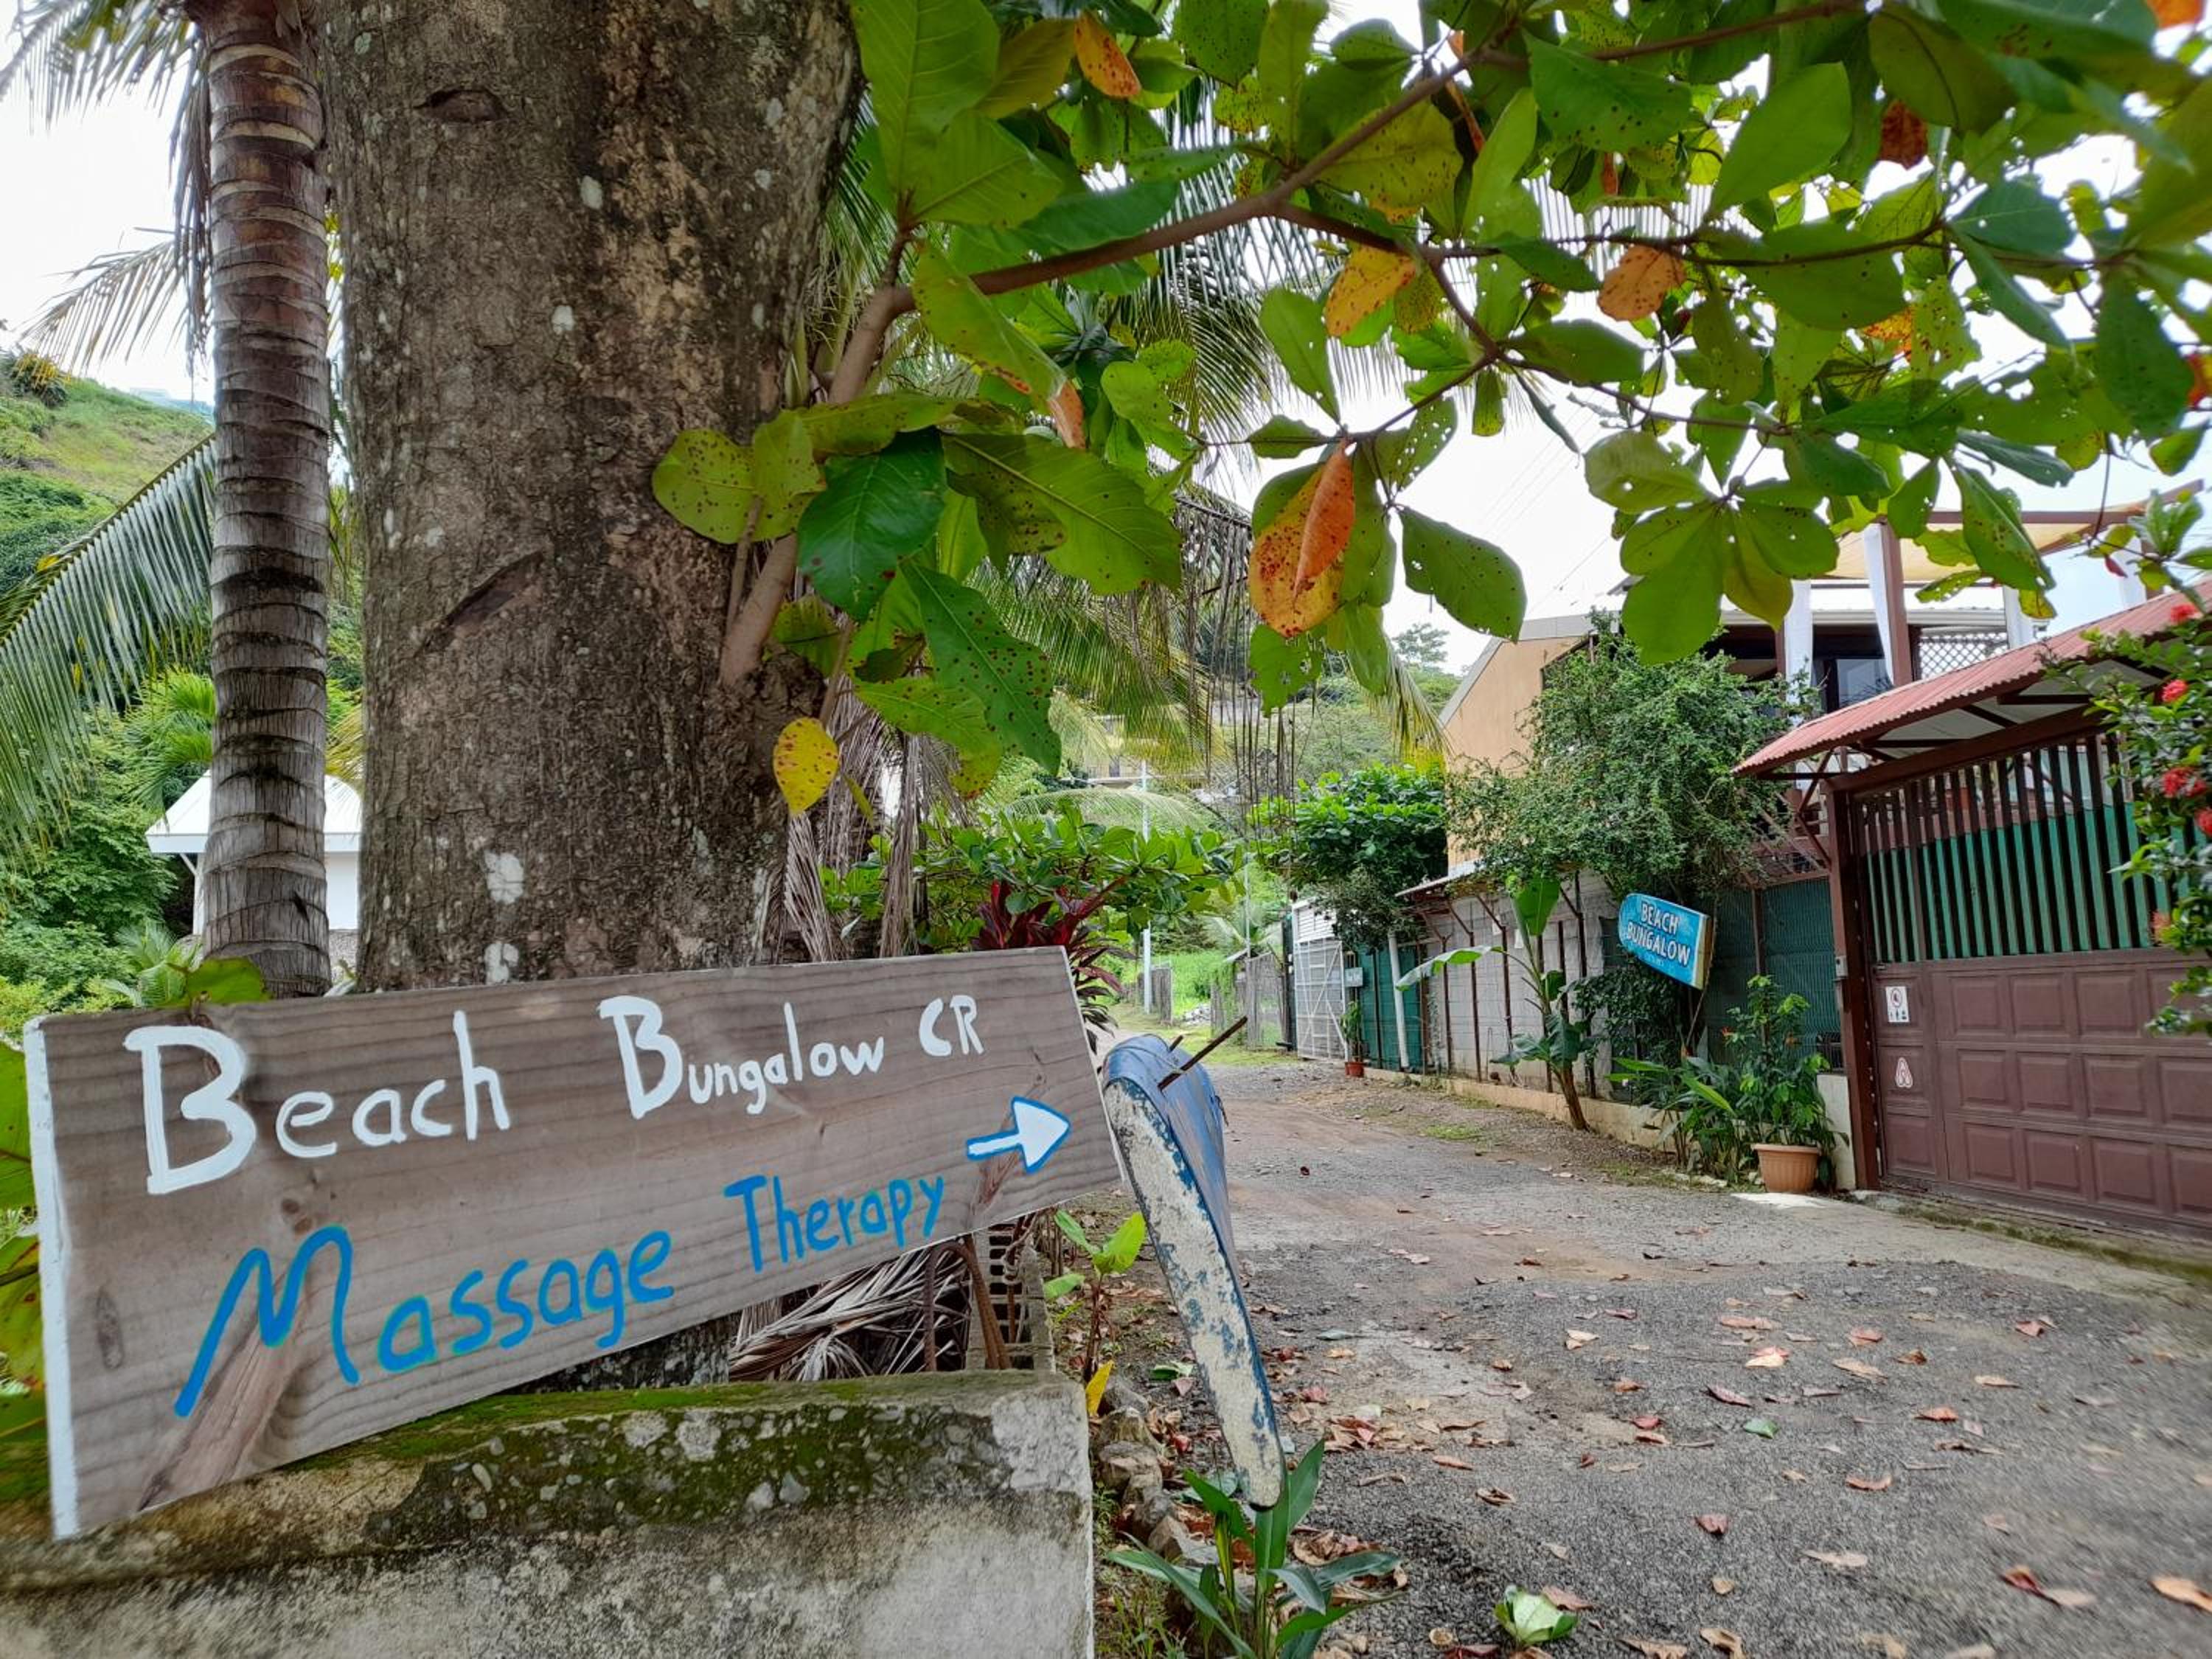 Beach Bungalow CR
Massage Therapy
BEACH
BUNGALOW